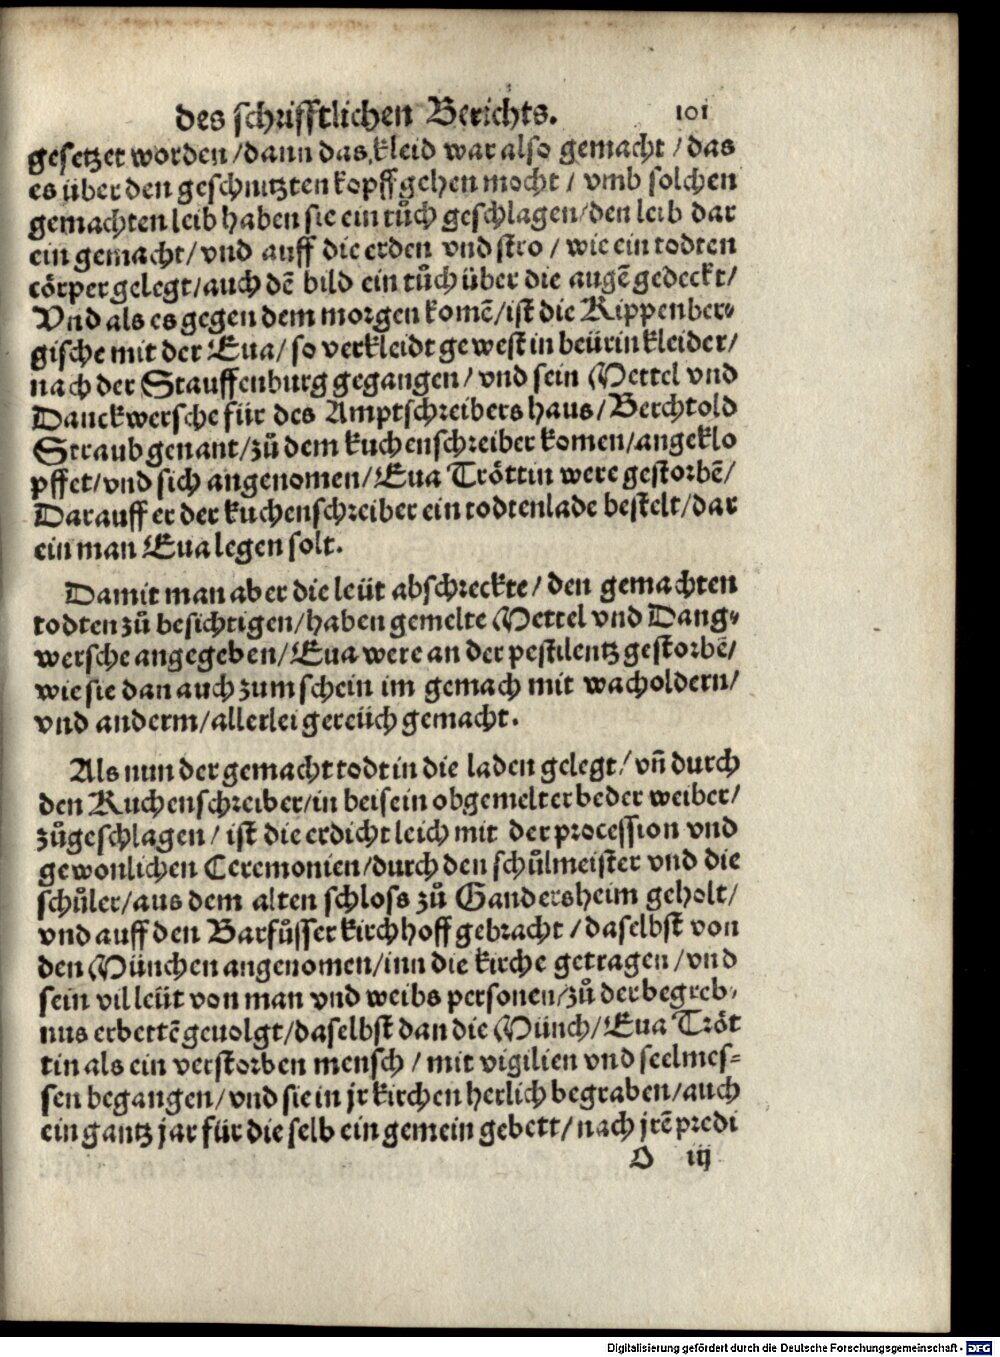 des schrifftlichen Berichts. 101
gesetzet worden / dann das kleid war also gemacht / das
es über den geschnitzten kopff gehen mocht / vmb solchen
gemachten leib haben sie ein tůch geschlagen / den leib dar
ein gemacht / vnd auff die erden vnd stro / wie ein todten
cörper gelegt / auch dē bild ein tůch über die augē gedeckt /
Vnd als es gegen dem morgen komē / ist die Rippenber⸗
gische mit der Eua / so verkleidt gewest in beürin kleider /
nach der Stauffenburg gegangen / vnd sein Mettel vnd
Danckwersche für des Amptschreibers haus / Berchtold
Straub genant / zů dem kuchenschreiber komen / angeklo
pffet / vnd sich angenomen / Eua Tröttin were gestorbē /
Darauff er der kuchenschreiber ein todtenlade bestelt / dar
ein man Eua legen solt.
Damit man aber die leüt abschreckte / den gemachten
todten zů besichtigen / haben gemelte Mettel vnd Dang⸗
wersche angegeben / Eua were an der pestilentz gestorbē /
wie sie dan auch zum schein im gemach mit wacholdern /
vnd anderm / allerlei gereüch gemacht.
Als nun der gemacht todt in die laden gelegt / vñ durch
den Kuchenschreiber / in beisein obgemelter beder weiber /
zůgeschlagen / ist die erdicht leich mit der procession vnd
gewonlichen Ceremonien / durch den schůlmeister vnd die
schůler / aus dem alten schloss zů Gandersheim geholt /
vnd auff den Barfůsser kirchhoff gebracht / daselbst von
den München angenomen / inn die kirche getragen / vnd
sein vil leüt von man vnd weibs personen / zů der begreb⸗
nus erbettē geuolgt / daselbst dan die Münch / Eua Tröt
tin als ein verstorben mensch / mit vigilien vnd seelmes⸗
sen begangen / vnd sie in jr kirchen herlich begraben / auch
ein gantz jar für die selb ein gemein gebett / nach jrē predi
O iij
Digitalisierung gefördert durch die Deutsche Forschungsgemeinschaft - DFG